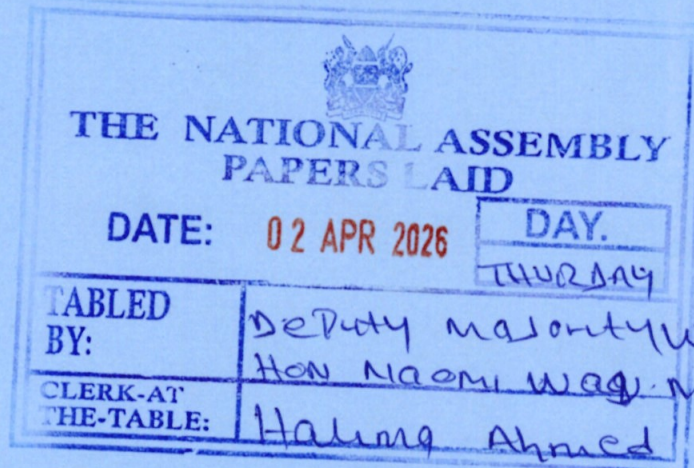 THE NATIONAL ASSEMBLY
PAPERS LAID
DATE: 02 APR 2026
DAY.
THURSDAY
TABLED BY:
Deputy Majority
HON Naomi Waq
CLERK-AT THE-TABLE:
Halima Ahmed